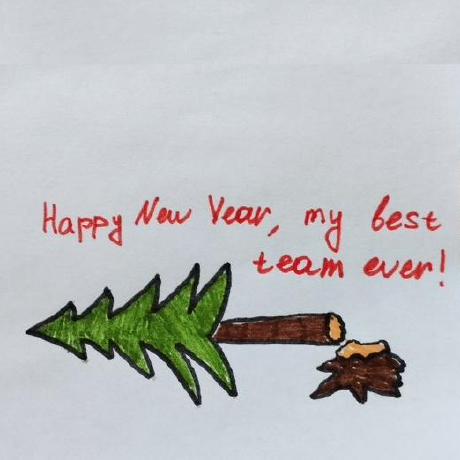 Happy New Year, my best
team ever!